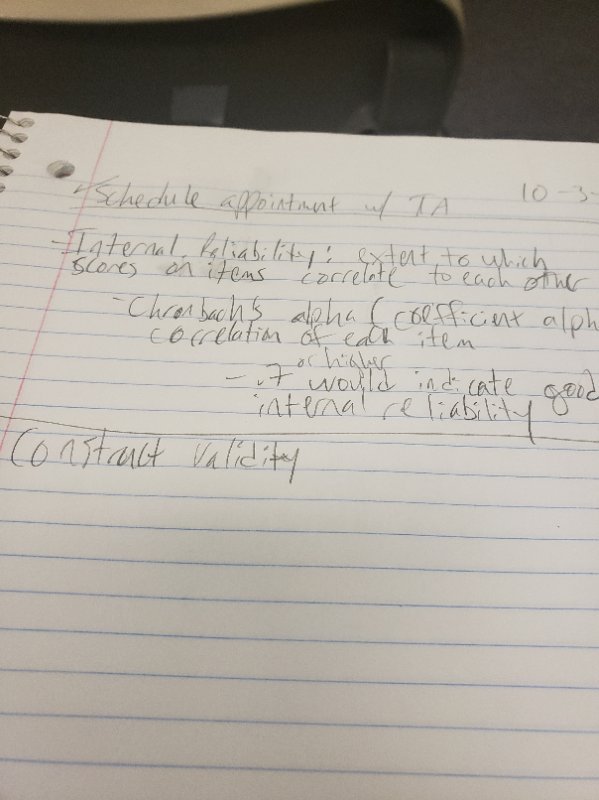 Schedule appointment w/ TA 10-3-
- Internal Reliability: extent to which
scores on items correlate to each other
- Chronbach's alpha (coefficient alph
correlation of each item
or higher
- .7 would indicate good
internal reliability
Construct validity